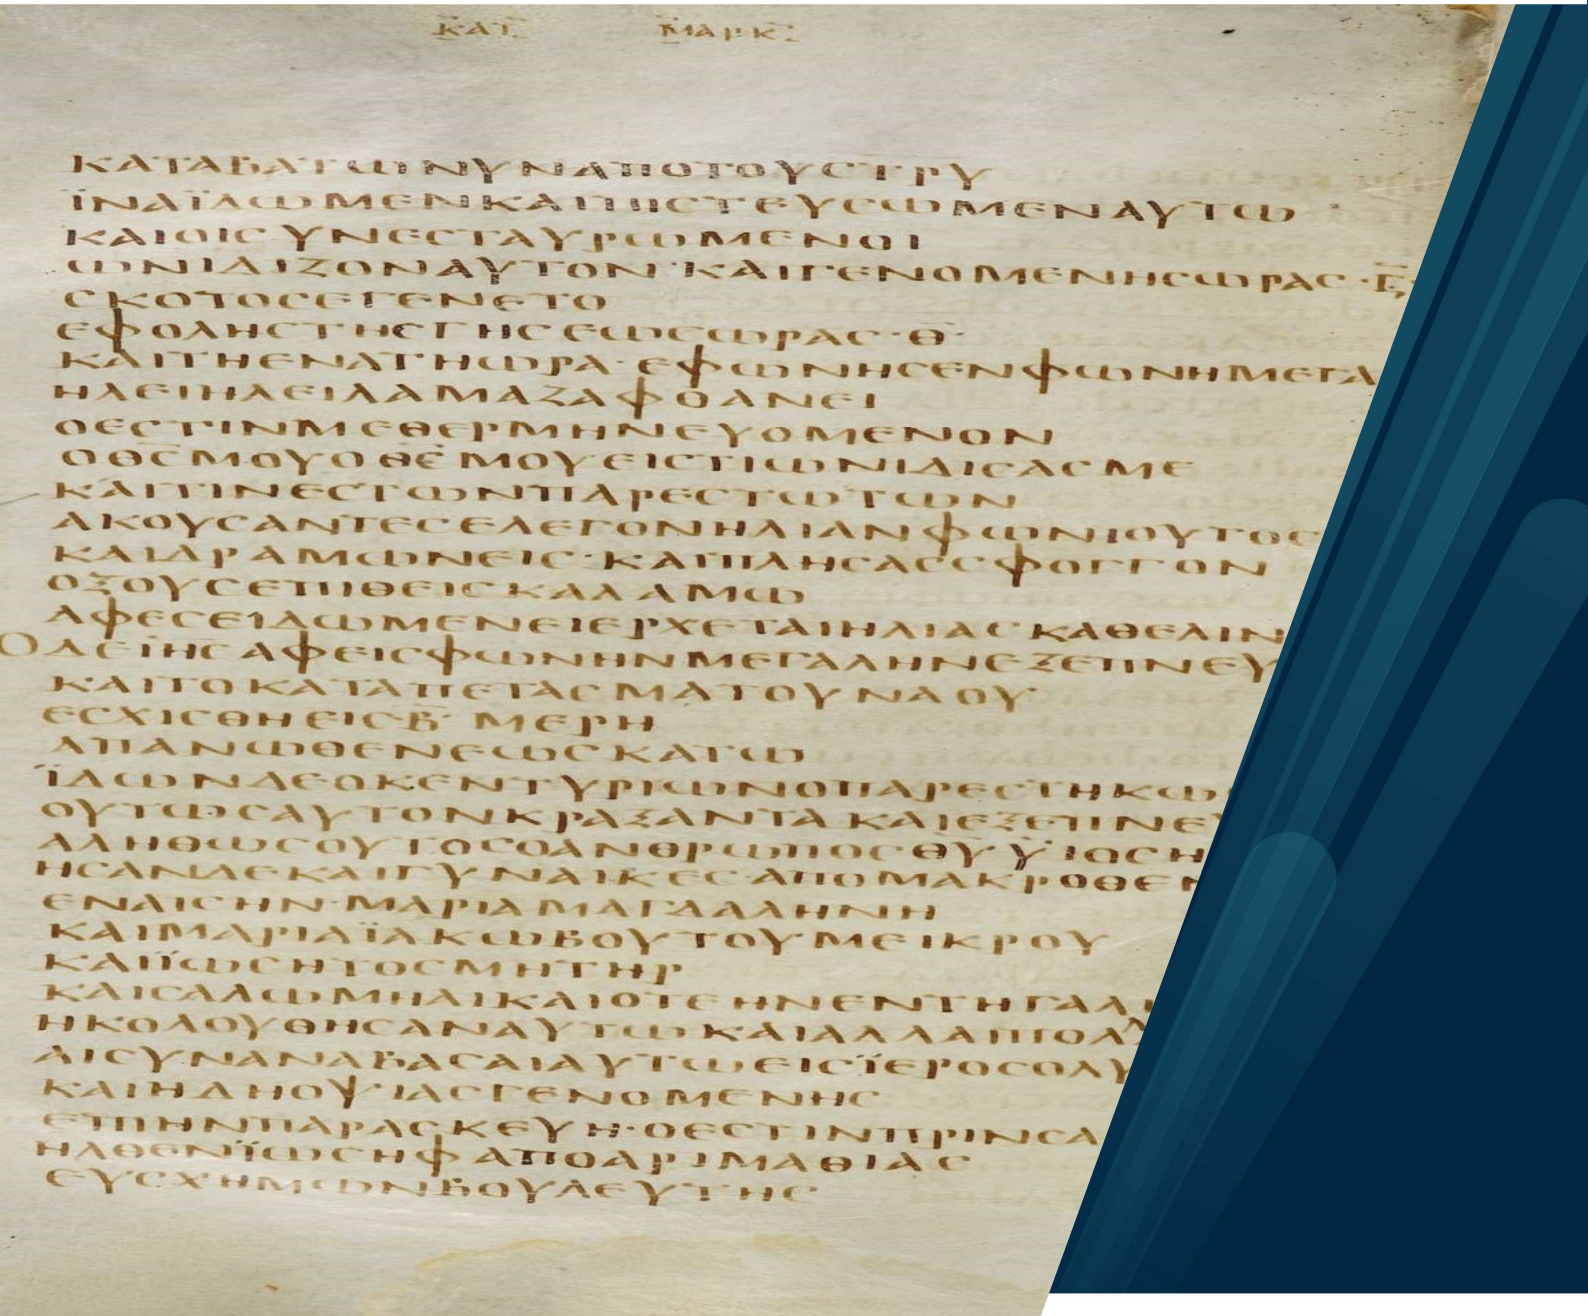 ΚΑΤ ΜΑΡΚ
ΚΑΤΑΒΑΤΩΝΥΝΑΠΟΤΟΥΣΤΡΥ
ΪΝΑΪΔΩΜΕΝΚΑΙΠΙΣΤΕΥΣΩΜΕΝΑΥΤΩ
ΚΑΙΟΙΣΥΝΕΣΤΑΥΡΩΜΕΝΟΙ
ΩΝΙΔΙΖΟΝΑΥΤΟΝ·ΚΑΙΓΕΝΟΜΕΝΗΣΩΡΑΣ·Ϛ̅
ΣΚΟΤΟΣΕΓΕΝΕΤΟ
ΕΦΟΛΗΣΤΗΣΓΗΣΕΩΣΩΡΑΣ·Θ̅·
ΚΑΙΤΗΕΝΑΤΗΩΡΑ·ΕΦΩΝΗΣΕΝΦΩΝΗΜΕΓΑ
ΗΛΕΙΗΛΕΙΛΑΜΑΖΑΦΘΑΝΕΙ
ΟΕΣΤΙΝΜΕΘΕΡΜΗΝΕΥΟΜΕΝΟΝ
ΟΘ̅Σ̅ΜΟΥΟΘ̅Ε̅ΜΟΥΕΙΣΤΙΩΝΙΔΙΣΑΣΜΕ
ΚΑΙΤΙΝΕΣΤΩΝΠΑΡΕΣΤΩΤΩΝ
ΑΚΟΥΣΑΝΤΕΣΕΛΕΓΟΝΗΛΙΑΝΦΩΝΙΟΥΤΟΣ
ΚΑΙΔΡΑΜΩΝΕΙΣ·ΚΑΙΠΛΗΣΑΣΣΦΟΓΓΟΝ
ΟΞΟΥΣΕΠΙΘΕΙΣΚΑΛΑΜΩ
ΑΦΕΣΕΙΔΩΜΕΝΕΙΕΡΧΕΤΑΙΗΛΙΑΣΚΑΘΕΛΙΝ
ΟΔΕΙ̅Η̅Σ̅ΑΦΕΙΣΦΩΝΗΝΜΕΓΑΛΗΝΕΞΕΠΝΕΥ
ΚΑΙΤΟΚΑΤΑΠΕΤΑΣΜΑΤΟΥΝΑΟΥ·
ΕΣΧΙΣΘΗΕΙΣΒ̅·ΜΕΡΗ
ΑΠΑΝΩΘΕΝΕΩΣΚΑΤΩ
ΪΔΩΝΔΕΟΚΕΝΤΥΡΙΩΝΟΠΑΡΕΣΤΗΚΩ
ΟΥΤΩΣΑΥΤΟΝΚΡΑΞΑΝΤΑΚΑΙΕΞΕΠΝΕ
ΑΛΗΘΩΣΟΥΤΟΣΟΑΝΘΡΩΠΟΣΘ̅Υ̅ΥΙΟΣΗ
ΗΣΑΝΔΕΚΑΙΓΥΝΑΙΚΕΣ·ΑΠΟΜΑΚΡΟΘΕΝ
ΕΝΑΙΣΗΝ·ΜΑΡΙΑΜΑΓΔΑΛΗΝΗ
ΚΑΙΜΑΡΙΑΪΑΚΩΒΟΥΤΟΥΜΕΙΚΡΟΥ
ΚΑΙΪΩΣΗΤΟΣΜΗΤΗΡ
ΚΑΙΣΑΛΩΜΗΑΙΚΑΙΟΤΕΗΝΕΝΤΗΓΑΛ
ΗΚΟΛΟΥΘΗΣΑΝΑΥΤΩΚΑΙΑΛΛΑΙΠΟΛ
ΑΙΣΥΝΑΝΑΒΑΣΑΙΑΥΤΩΕΙΣΪΕΡΟΣΟΛΥ
ΚΑΙΗΔΗΟΨΙΑΣΓΕΝΟΜΕΝΗΣ
ΕΠΙΗΝΠΑΡΑΣΚΕΥΗ·ΟΕΣΤΙΝΠΡΙΝΣΑ
ΗΛΘΕΝΪΩΣΗΦΑΠΟΑΡΙΜΑΘΙΑΣ
ΕΥΣΧΗΜΩΝΒΟΥΛΕΥΤΗΣ